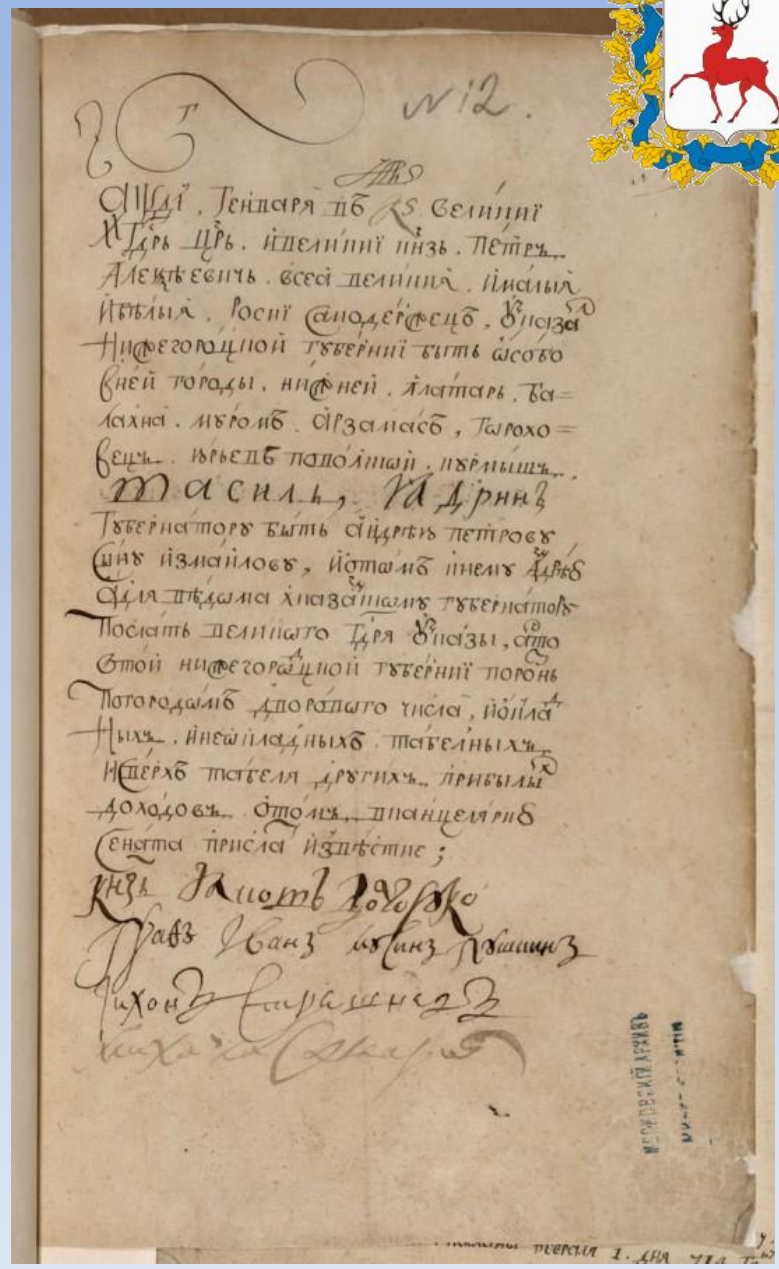 N 12.
҂аѱді, Генваря въ кѕ Великиі
Гдрь црь. и великиі кнзь. Петръ
Алеѯѣевичь. всеа великия. и малыя
и бѣлыя. Росиі самодержецъ, ꙋказал
Нижегороцкой гꙋберниі быть ѡсобо
в ней городы. нижней. алатарь. ба=
лахна. мꙋромъ. арзамасъ, гѡрохо=
вецъ. юрьевъ поволской. кꙋрмышъ.
василь, ядринъ
Гꙋбернаторꙋ быть андрѣю петровꙋ
сынꙋ измаиловꙋ, и ѡ томъ к нему
а для вѣдома х казанскомꙋ гꙋбернаторꙋ
Послать великого гдря ꙋказы, а что
с тои нижегороцкой гꙋберниі порознь
по городамъ дворового числа, и ѡклад
ныхъ. и неѡкладныхъ табелныхъ
и сверхъ табеля дрꙋгихъ прибылых
доходовъ. ѡ томъ в канцелярию
сената присла извѣстие;
Кнзь Яковъ Долгоруко
Графъ Іванъ мусинъ пушкинъ
Тихонъ Стрешневъ
Михаило Самарин
МОСКОВСКІЙ АРХИВЪ
февраля 1. дня 714